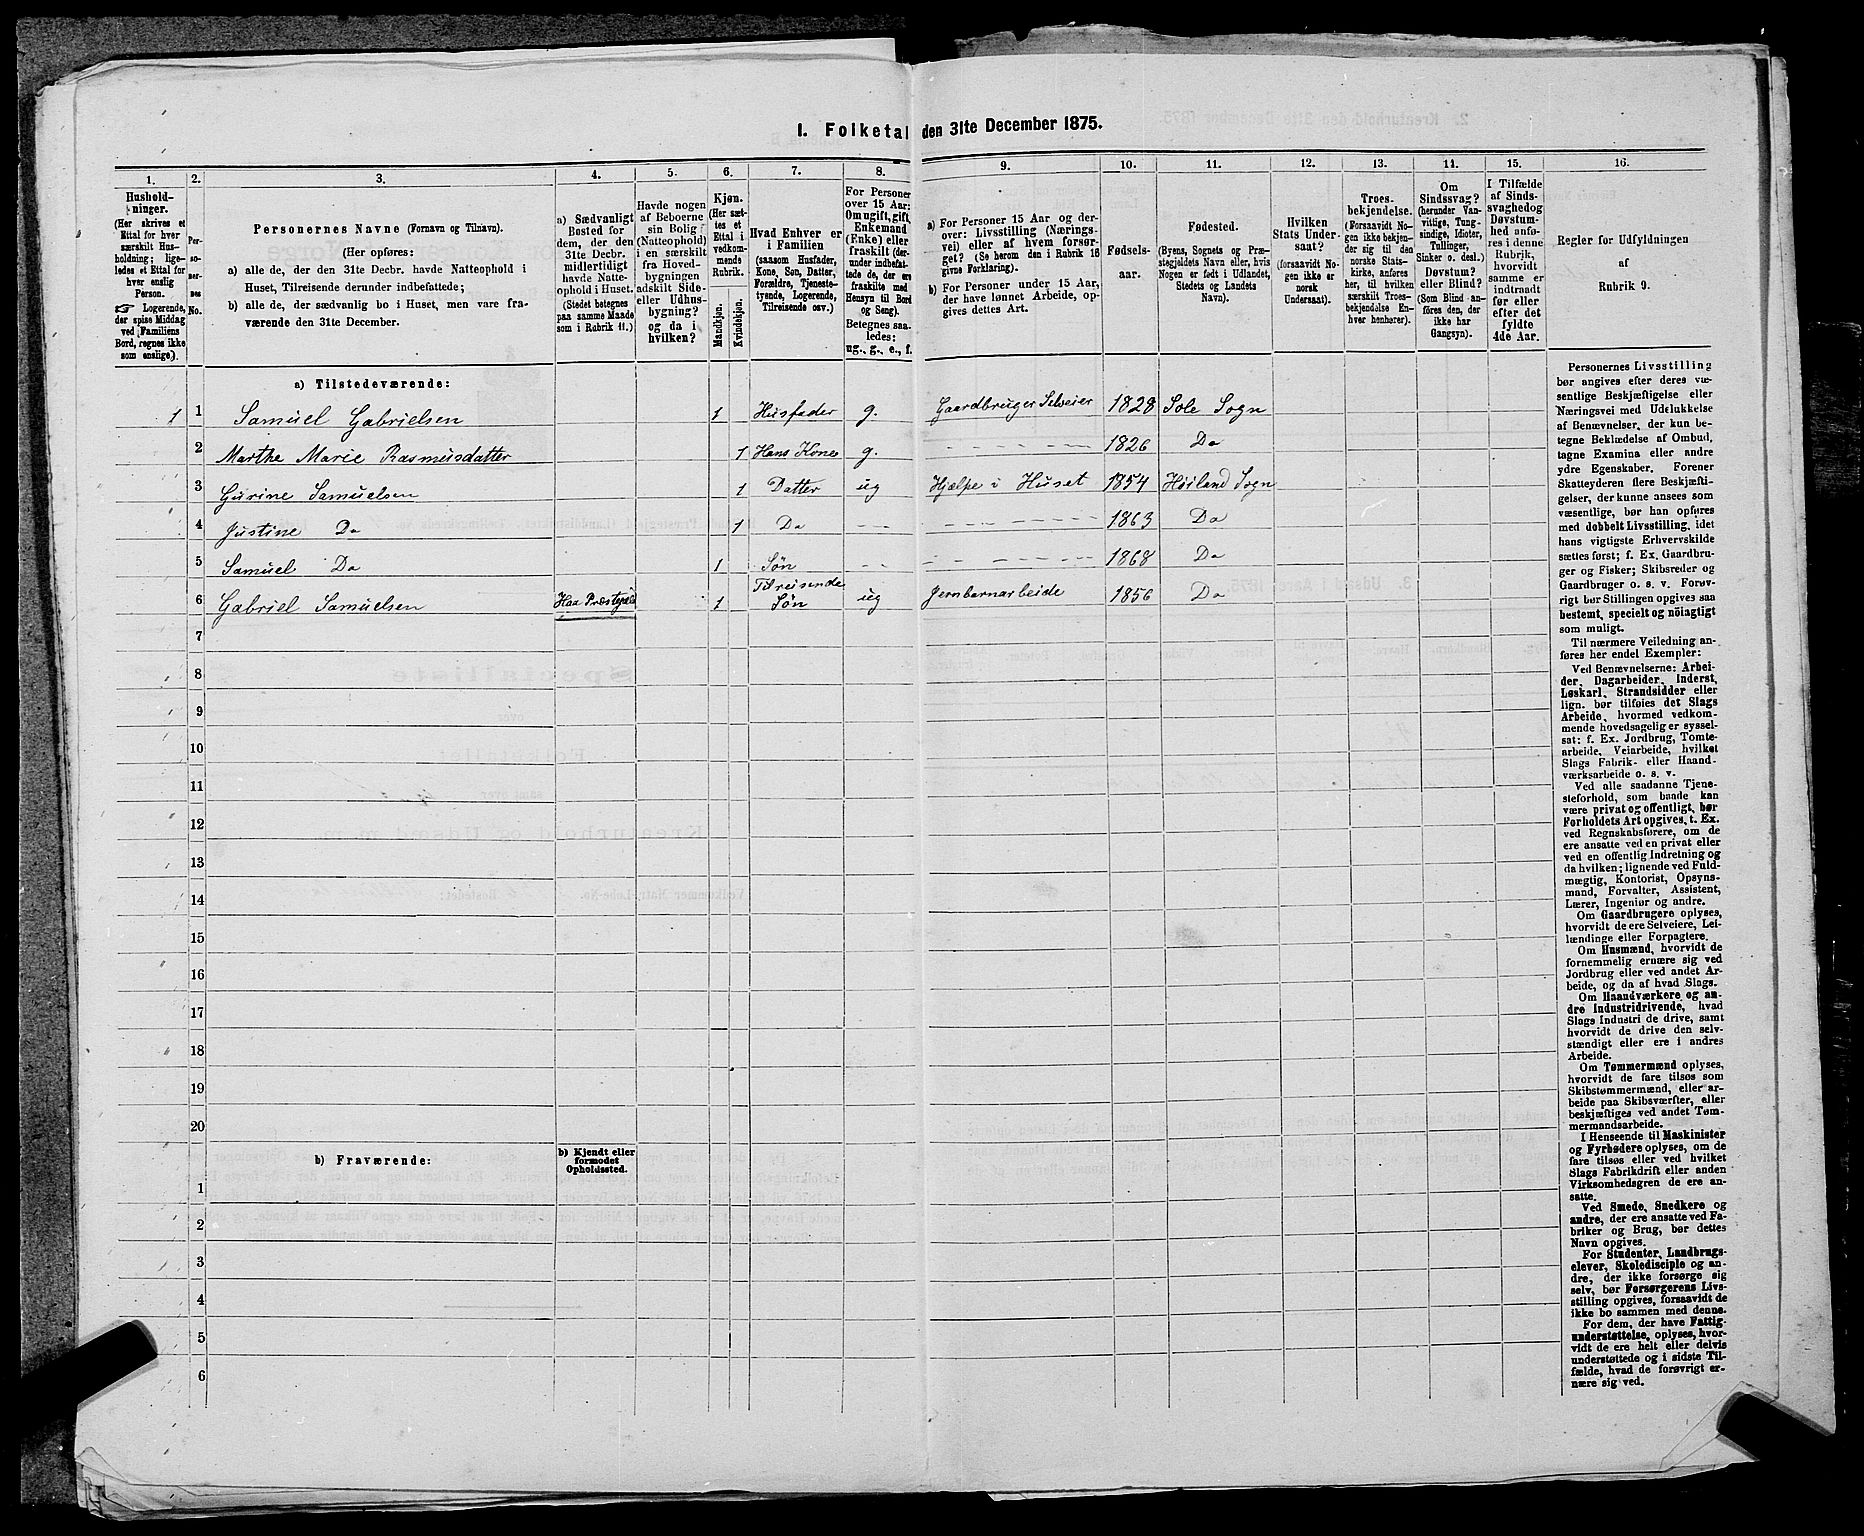 I. Folketal den 31te December 1875.
1. 2. 3. 4. 5. 6. 7. 8. 9. 10. 11. 12. 13. 14. 15. 16.
Hushold-
ninger.
(Her skrives et
Ettal for hver
særskilt Hus-
holdning; lige-
ledes et Ettal for
hver enslig
Person.
☞ Logerende,
der spise Middag
ved Familiens
Bord, regnes ikke
som enslige).
Per-
so-
ner-
nes
No.
Personernes Navne (Fornavn og Tilnavn).
(Her opføres:
a) alle de, der den 31te Decbr. havde Natteophold i
Huset, Tilreisende derunder indbefattede;
b) alle de, der sædvanlig bo i Huset, men vare fra-
værende den 31te December.
a) Sædvanligt
Bosted for
dem, der den
31te Decbr.
midlertidigt
havde Natte-
ophold i Huset.
(Stedet betegnes
paa samme Maade
som i Rubrik 11.)
Havde nogen
af Beboerne
sin Bolig
(Natteophold)
i en særskilt
fra Hoved-
bygningen
adskilt Side-
eller Udhus-
bygning?
og da i
hvilken?
Kjøn.
(Her sæt-
tes et
Ettal i
vedkom-
mende
Rubrik.
Mandkjøn.
Kvindekjøn.
Hvad Enhver er
i Familien
(saasom Husfader,
Kone, Søn, Datter,
Forældre, Tjeneste-
tyende, Logerende,
Tilreisende osv.)
For Personer
over 15 Aar:
Om ugift, gift,
Enkemand
(Enke) eller
fraskilt (der-
under indbefat-
tede de, der ere
fraskilte med
Hensyn til Bord
og Seng).
Betegnes saa-
ledes:
ug., g., e., f.
a) For Personer 15 Aar og der-
over: Livsstilling (Nærings-
vei) eller af hvem forsør-
get? (Se herom den i Rubrik 16
givne Forklaring).
b) For Personer under 15 Aar,
der have lønnet Arbeide, op-
gives dettes Art.
Fødsels-
aar.
Fødested.
(Byens, Sognets og Præ-
stegjeldets Navn eller, hvis
Nogen er født i Udlandet,
Stedets og Landets
Navn).
Hvilken
Stats Under-
saat?
(forsaavidt No-
gen ikke er
norsk
Undersaat).
Troes-
bekjendelse.
(Forsaavidt No-
gen ikke bekjen-
der sig til den
norske Stats-
kirke, anføres
her, til hvilken
særskilt Troes-
bekjendelse En-
hver henhører).
Om
Sindssvag?
(herunder Van-
vittige, Tung-
sindige, Idioter,
Tullinger,
Sinker o. desl.)
Døvstum?
eller Blind?
(Som Blind an-
føres den, der
ikke har
Gangsyn).
I Tilfælde
af Sinds-
svaghed og
Døvstum-
hed anfø-
res i denne
Rubrik,
hvorvidt
samme er
indtraadt
før eller
efter det
fyldte
4de Aar.
Regler for Udfyldningen
af
Rubrik 9.
a) Tilstedeværende:
1 1 Samuel Gabrielsen 1 Husfader g. Gaardbruger Selveier 1828 Sole Sogn
2 Marthe Marie Rasmusdatter 1 Hans Kone g. - - - - - - 1826 Do
3 Gurine Samuelsen 1 Datter ug Hjælpe i Huset 1854 Høiland Sogn
4 Justine Do 1 Do - - - - - - - - - 1863 Do
5 Samuel Do 1 Søn - - - - - - - - 1868 Do
6 Gabriel Samuelsen Haa Præstegjeld 1 Tilreisende Søn ug Jernbanarbeide 1856 Do
7
8
9
10
11
12
13
14
15
16
17
18
19
20
b) Fraværende:
b) Kjendt eller
formodet
Opholdssted.
1
2
3
4
5
6
Personernes Livsstilling
bør angives efter deres væ-
sentlige Beskjæftigelse eller
Næringsvei med Udelukkelse
af Benævnelser, der kun be-
tegne Beklædelse af Ombud,
tagne Examina eller andre
ydre Egenskaber. Forener
Skatteyderen flere Beskjæfti-
gelser, der kunne ansees som
væsentlige, bør han opføres
med dobbelt Livsstilling, idet
hans vigtigste Erhvervskilde
sættes først; f. Ex. Gaardbru-
ger og Fisker; Skibsreder og
Gaardbruger o. s. v. Forøv-
rigt bør Stillingen opgives saa
bestemt, specielt og nöiagtigt
som muligt.
Til nærmere Veiledning an-
føres her endel Exempler:
Ved Benævnelserne: Arbei-
der, Dagarbeider, Inderst,
Løskarl, Strandsidder eller
lign. bør tilføies det Slags
Arbeide, hvormed vedkom-
mende hovedsagelig er syssel-
sat; f. Ex. Jordbrug, Tomte-
arbeide, Veiarbeide, hvilket
Slags Fabrik- eller Haand-
værksarbeide o. s. v.
Ved alle saadanne Tjene-
steforhold, som baade kan
være privat og offentligt, bør
Forholdets Art opgives, t. Ex.
ved Regnskabsførere, om de
ere ansatte ved en privat eller
ved en offentlig Indretning og
da hvilken; lignende ved Fuld-
mægtig, Kontorist, Opsyns-
mand, Forvalter, Assistent,
Lærer, Ingeniør og andre.
Om Gaardbrugere oplyses,
hvorvidt de ere Selveiere, Lei-
lændinge eller Forpagtere.
Om Husmænd, hvorvidt de
fornemmelig ernære sig ved
Jordbrug eller ved andet Ar-
beide, og da af hvad Slags.
Om Haandværkere og an-
dre Industridrivende, hvad
Slags Industri de drive, samt
hvorvidt de drive den selv-
stændigt eller ere i andres
Arbeide.
Om Tømmermænd oplyses,
hvorvidt de fare tilsøs som
Skibstømmermænd, eller ar-
beide paa Skibsværfter, eller
beskjæftiges ved andet Tøm-
mermandsarbeide.
I Henseende til Maskinister
og Fyrbødere oplyses, om de
fare tilsøs eller ved hvilket
Slags Fabrikdrift eller anden
Virksomhedsgren de ere an-
satte.
Ved Smede, Snedkere og
andre, der ere ansatte ved Fa-
briker og Brug, bør dettes
Navn opgives.
For Studenter, Landbrugs-
elever, Skoledisciple og an-
dre, der ikke forsørge sig
selv, bør Forsørgerens Livs-
stilling opgives, forsaavidt de
ikke bo sammen med denne.
For dem, der have Fattig-
understøttelse, oplyses, hvor-
vidt de ere helt eller delvis
understøttede og i sidste Til-
fælde, hvad de forøvrigt er-
nære sig ved.